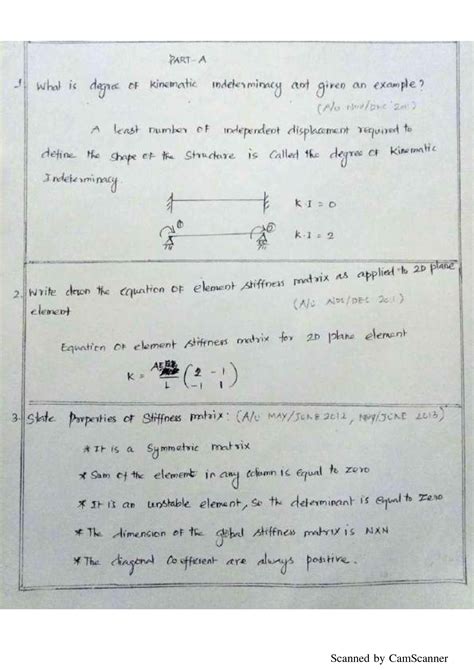 PART-A
1. What is degree of kinematic indeterminacy and given an example?
(A/U NOV/DEC 2011)
A least number of independent displacement required to
define the shape of the structure is called the degree of kinematic
Indeterminacy.
K.I = 0
① ②
K.I = 2
2. Write down the equation of element stiffness matrix as applied to 2D plane
element
(A/U NOV/DEC 2011)
Equation of element stiffness matrix for 2D plane element
K = AE
L ( 2 -1
-1 1 )
3. State Properties of Stiffness matrix: (A/U MAY/JUNE 2012, /JUNE 2013)
* It is a Symmetric matrix
* Sum of the element in any column is equal to zero
* It is an unstable element, So the determinant is equal to Zero
* The dimension of the global stiffness matrix is NXN
* The diagonal Coefficient are always positive.
Scanned by CamScanner